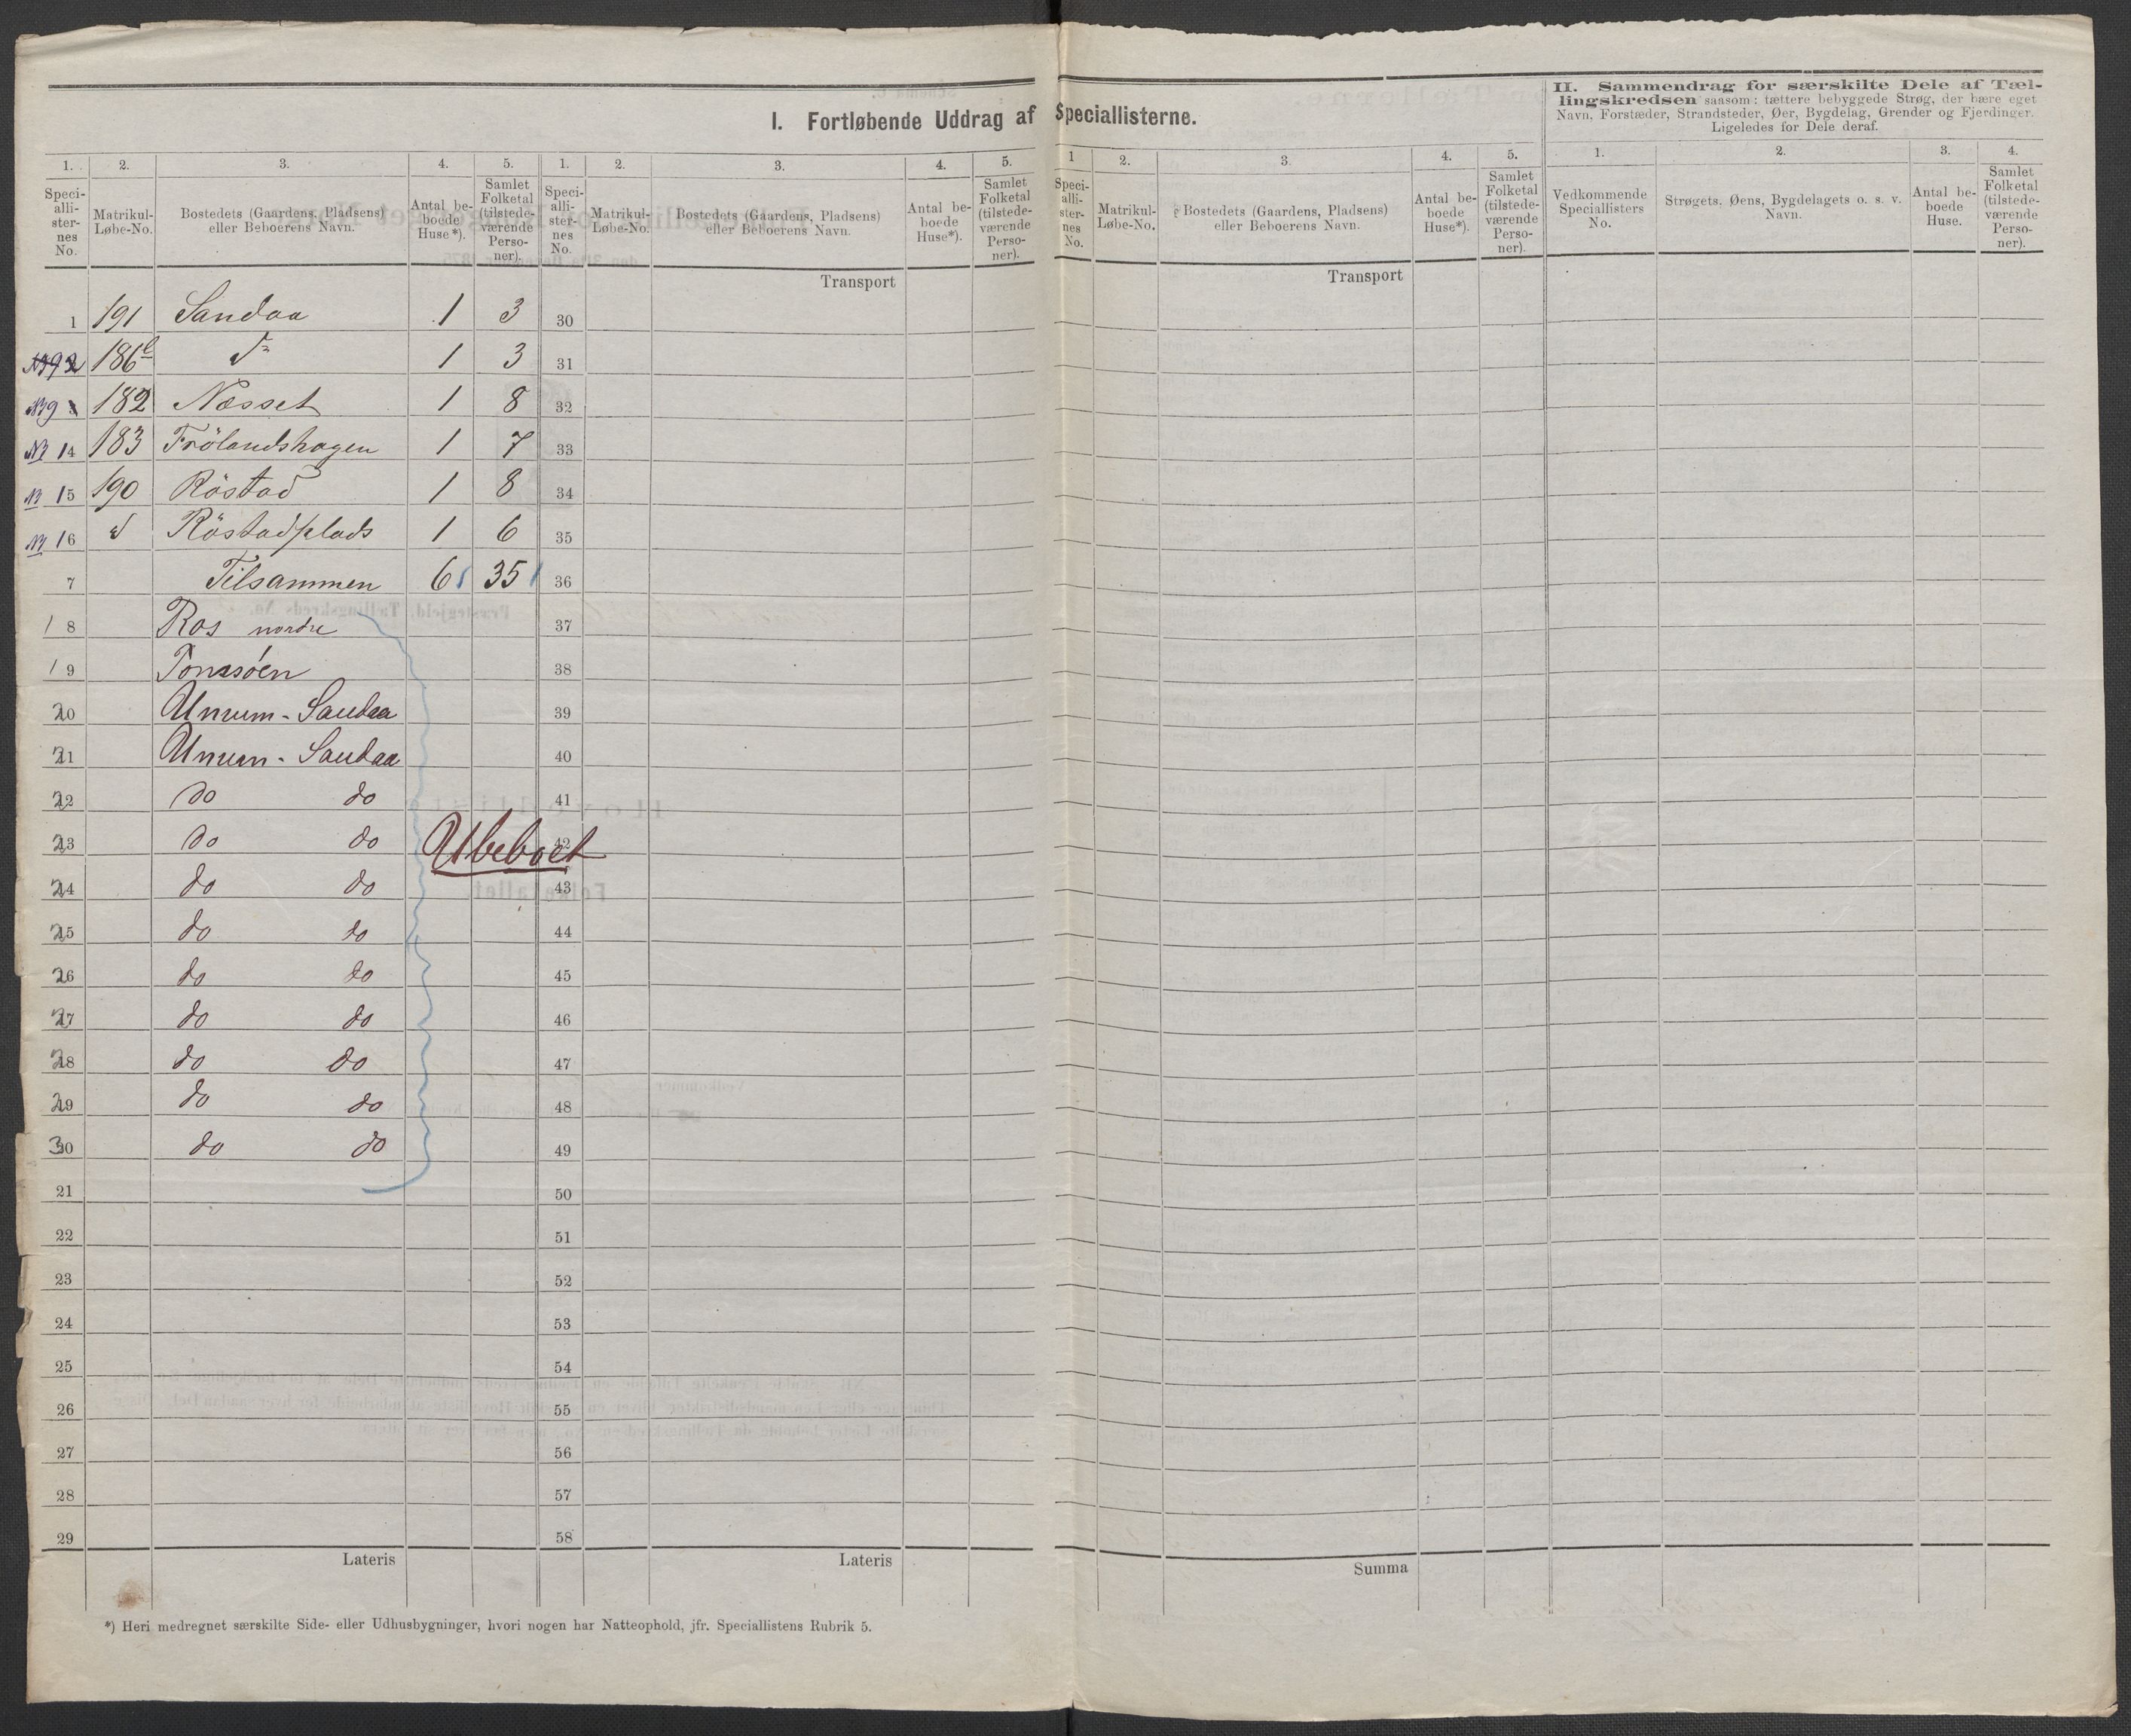 I. Fortløbende Uddrag af Speciallisterne.
II. Sammendrag for særskilte Dele af Tæl-
lingskredsen saasom: tættere bebyggede Strøg, der bære eget
Navn, Forstæder, Strandsteder, Øer, Bygdelag, Grender og Fjerdinger.
Ligeledes for Dele deraf.
1. 2. 3. 4. 5. 1. 2. 3. 4. 5. 1 2. 3. 4. 5. 1. 2. 3. 4.
Speci-
alli-
ster-
nes
No.
Matrikul-
Løbe-No.
Bostedets (Gaardens, Pladsens)
eller Beboerens Navn.
Antal be-
boede
Huse*).
Samlet
Folketal
(tilstede-
værende
Perso-
ner).
Speci-
alli-
ster-
nes
No.
Matrikul-
Løbe-No.
Bostedets (Gaardens, Pladsens)
eller Beboerens Navn.
Antal be-
boede
Huse*).
Samlet
Folketal
(tilstede-
værende
Perso-
ner).
Speci-
alli-
ster-
nes
No.
Matrikul-
Løbe-No.
Bostedets (Gaardens, Pladsens)
eller Beboerens Navn.
Antal be-
boede
Huse*).
Samlet
Folketal
(tilstede-
værende
Perso-
ner).
Vedkommende
Speciallisters
No.
Strøgets, Øens, Bygdelagets o. s. v.
Navn.
Antal be-
boede
Huse.
Samlet
Folketal
(tilstede-
værende
Perso-
ner).
Transport
Transport
1 191 Sandaa 1 3 30
186 1 3 31
182 Næsset 1 8 32
14 183 Frölandshagen 1 7 33
15 190 Röstad 1 8 34
16 Röstadplads 1 6 35
7 Tilsammen 6 35 36
18 Ros nordre 37
19 38
20 Unum - Sandaa 39
21 Unum - Sandaa 40
22 do do 41
23 do do 42
Ubeboet
24 do do 43
25 do do 44
26 do do 45
27 do do 46
28 do do 47
29 do do 48
30 do do 49
21 50
22 51
23 52
24 53
25 54
26 55
27 56
28 57
29 58
Lateris
Lateris
Summa
*) Heri medregnet særskilte Side- eller Udhusbygninger, hvori nogen har Natteophold, jfr. Speciallistens Rubrik 5.